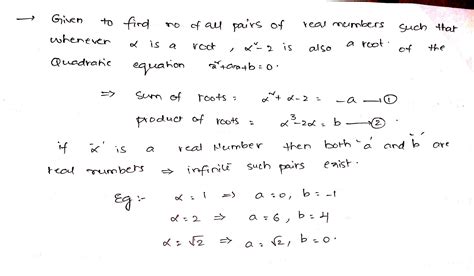 → Given to find no of all pairs of real numbers such that
whenever α is a root, α²-2 is also a root of the
Quadratic equation x²+ax+b=0.
⇒ Sum of roots = α²+α-2 = -a —①
product of roots = α³-2α = b —②
if 'α' is a real Number then both 'a' and 'b' are
real numbers ⇒ infinite such pairs exist.
Eg:- α=1 ⇒ a=0, b=-1
α=2 ⇒ a=6, b=4
α=√2 ⇒ a=√2, b=0.